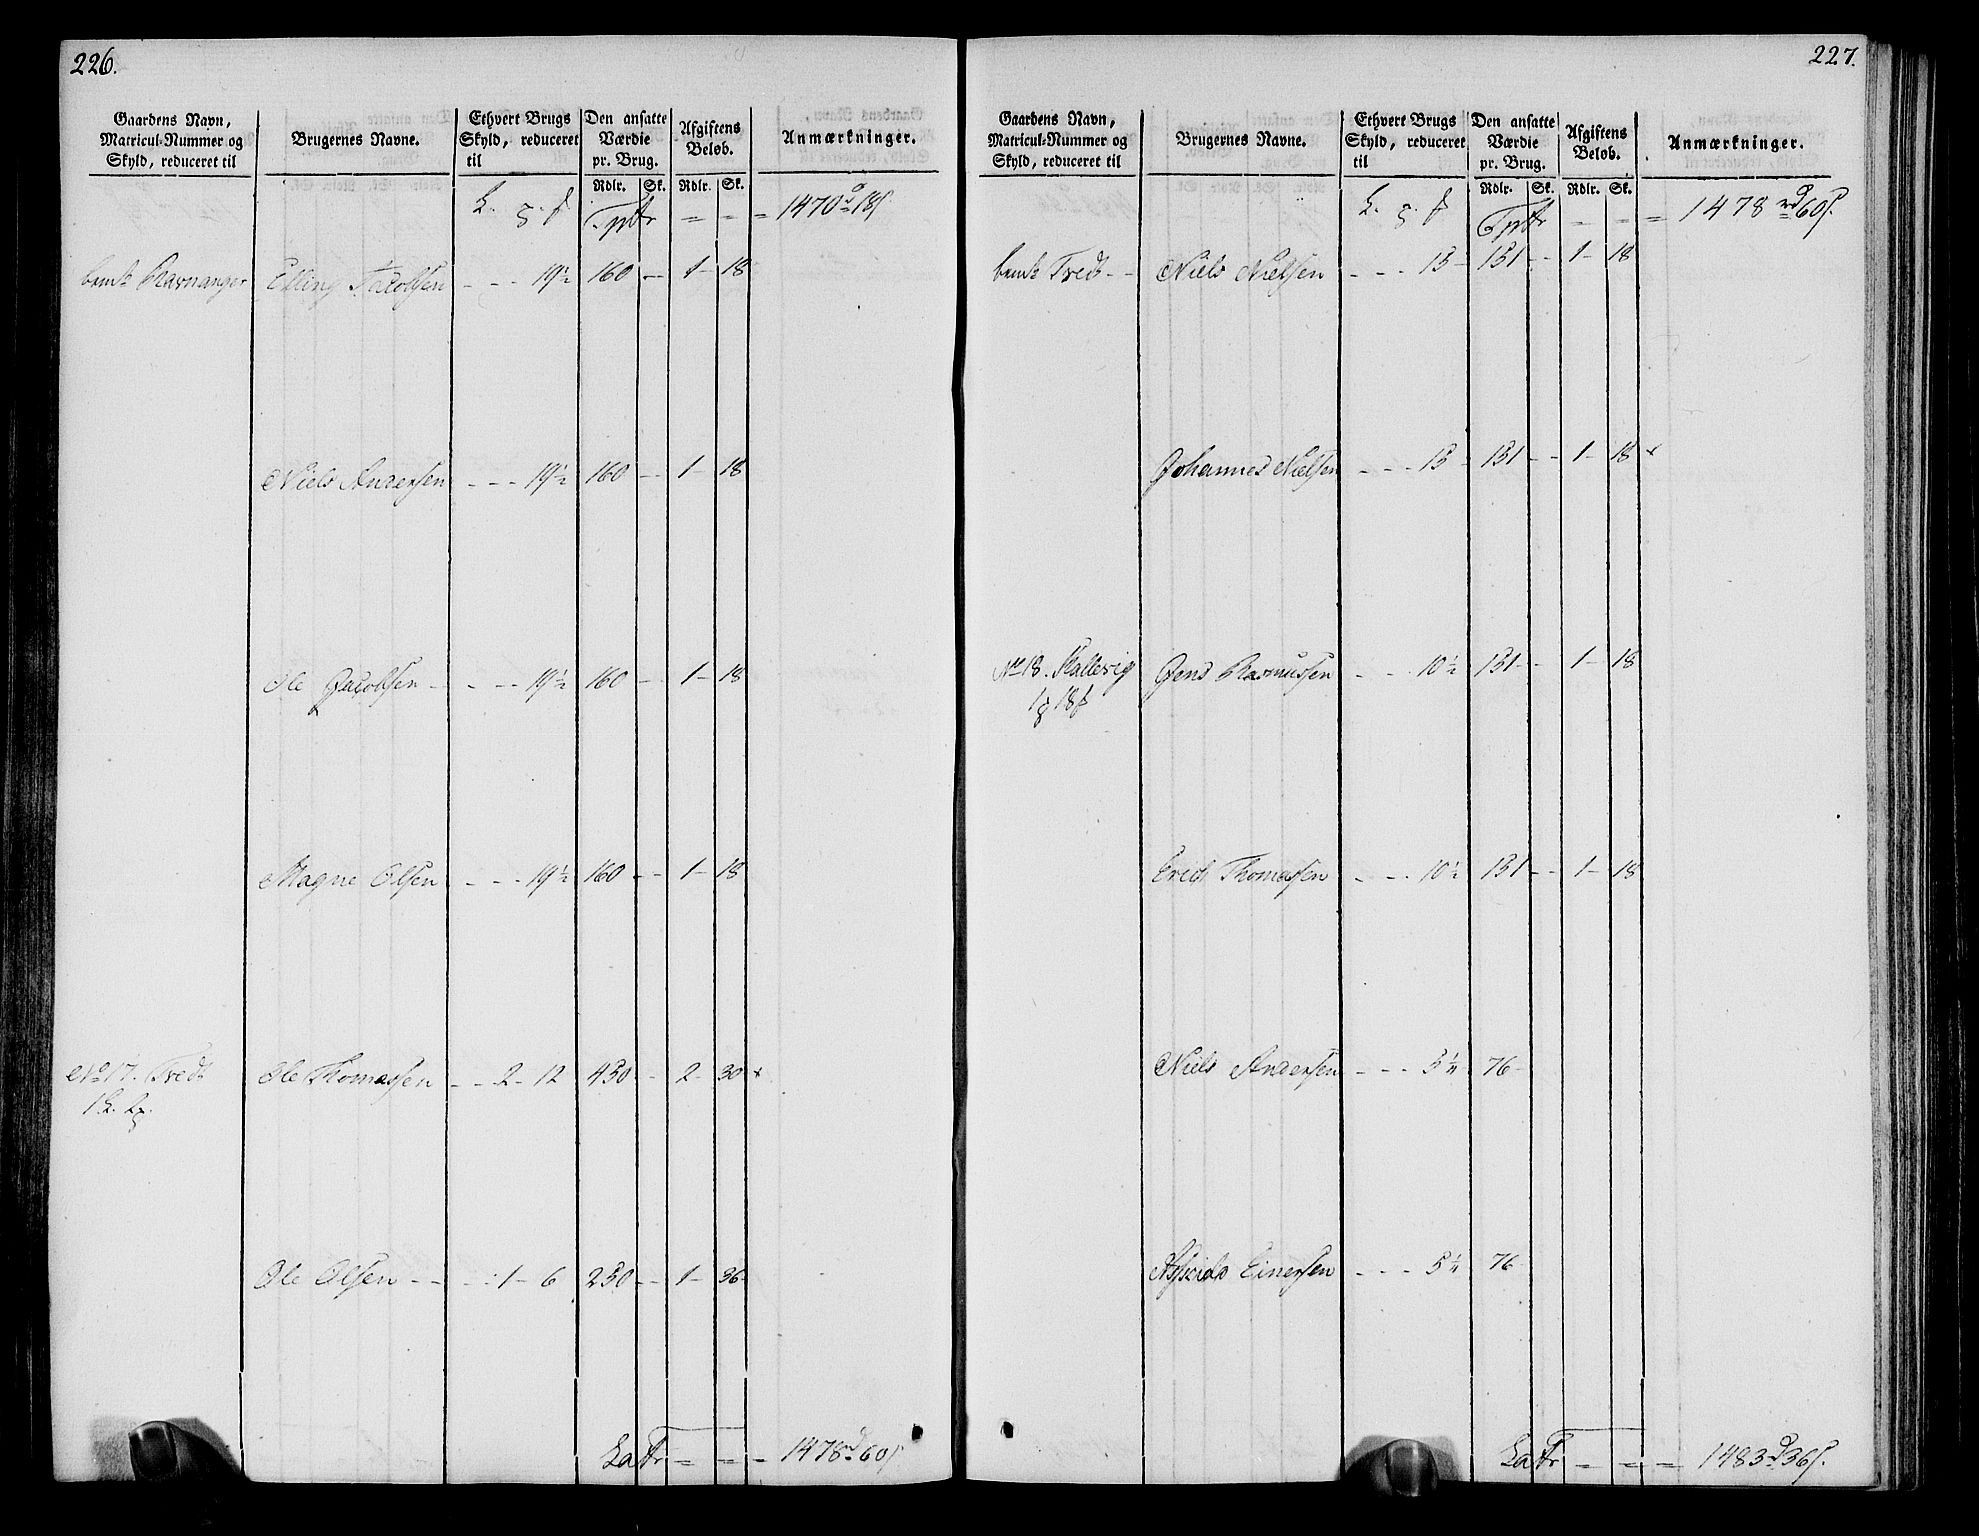 226.
Gaardens Navn, Matricul-Nummer og Skyld, reduceret til | Brugernes Navne. | Ethvert Brugs Skyld, reduceret til | Den ansatte Værdie pr. Brug. | Afgiftens Beløb. | Anmærkninger.
Rdlr. Sk. Rdlr. Sk.
Tptr = = = 1470 d 18 s
bemte Ravnanger Elling Jacobsen - - - 19½ 160 - - 1 - 18
Niels Andersen - - - 19½ 160 - - 1 - 18
Ole Jacobsen - - - - 19½ 160 - - 1 - 18
Magne Olsen - - - 19½ 160 - - 1 - 18
No 17. Tvedt Ole Thomassen - - 2 - 12 450 - - 2 - 30 x
Ole Olsen - - - 1 - 6 250 - - 1 - 36
Latr = = = 1478 d 60 s
227.
Gaardens Navn, Matricul-Nummer og Skyld, reduceret til | Brugernes Navne. | Ethvert Brugs Skyld, reduceret til | Den ansatte Værdie pr. Brug. | Afgiftens Beløb. | Anmærkninger.
Rdlr. Sk. Rdlr. Sk.
Tptr = = = 1478 rd 60 s.
bemte Tvedt - - Niels Nielsen - - - 15 - 151 - - 1 - 18
Johannes Nielsen - - - 15 - 151 - - 1 - 18 x
No 18. Hallevig Jens Rasmussen - - - 10½ 151 - - 1 - 18
Erich Thomassen - - - 10½ 151 - - 1 - 18
Niels Andersen - - - 5¼ 76 -
Einersen - - - 5¼ 76
Latr = = = 1483 d 36 s.